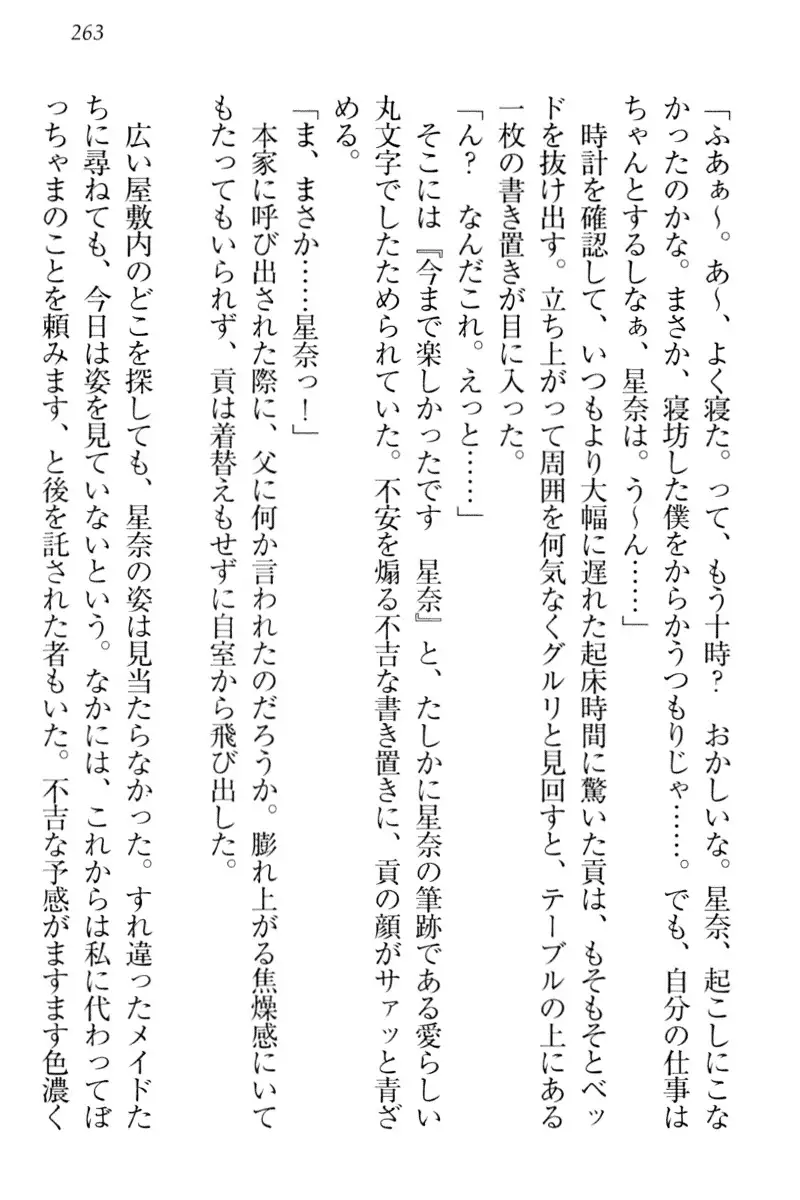 263
「ふあぁ～。あ～、よく寝た。って、もう十時？　おかしいな。星奈、起こしにこな
かったのかな。まさか、寝坊した僕をからかうつもりじゃ……。でも、自分の仕事は
ちゃんとするしなぁ、星奈は。う～ん……」
時計を確認して、いつもより大幅に遅れた起床時間に驚いた貢は、もそもそとベッ
ドを抜け出す。立ち上がって周囲を何気なくグルリと見回すと、テーブルの上にある
一枚の書き置きが目に入った。
「ん？　なんだこれ。えっと……」
そこには『今まで楽しかったです　星奈』と、たしかに星奈の筆跡である愛らしい
丸文字でしたためられていた。不安を煽る不吉な書き置きに、貢の顔がサァッと青ざ
める。
「ま、まさか……星奈っ！」
本家に呼び出された際に、父に何か言われたのだろうか。膨れ上がる焦燥感にいて
もたってもいられず、貢は着替えもせずに自室から飛び出した。
広い屋敷内のどこを探しても、星奈の姿は見当たらなかった。すれ違ったメイドた
ちに尋ねても、今日は姿を見ていないという。なかには、これからは私に代わってぼ
っちゃまのことを頼みます、と後を託された者もいた。不吉な予感がますます色濃く